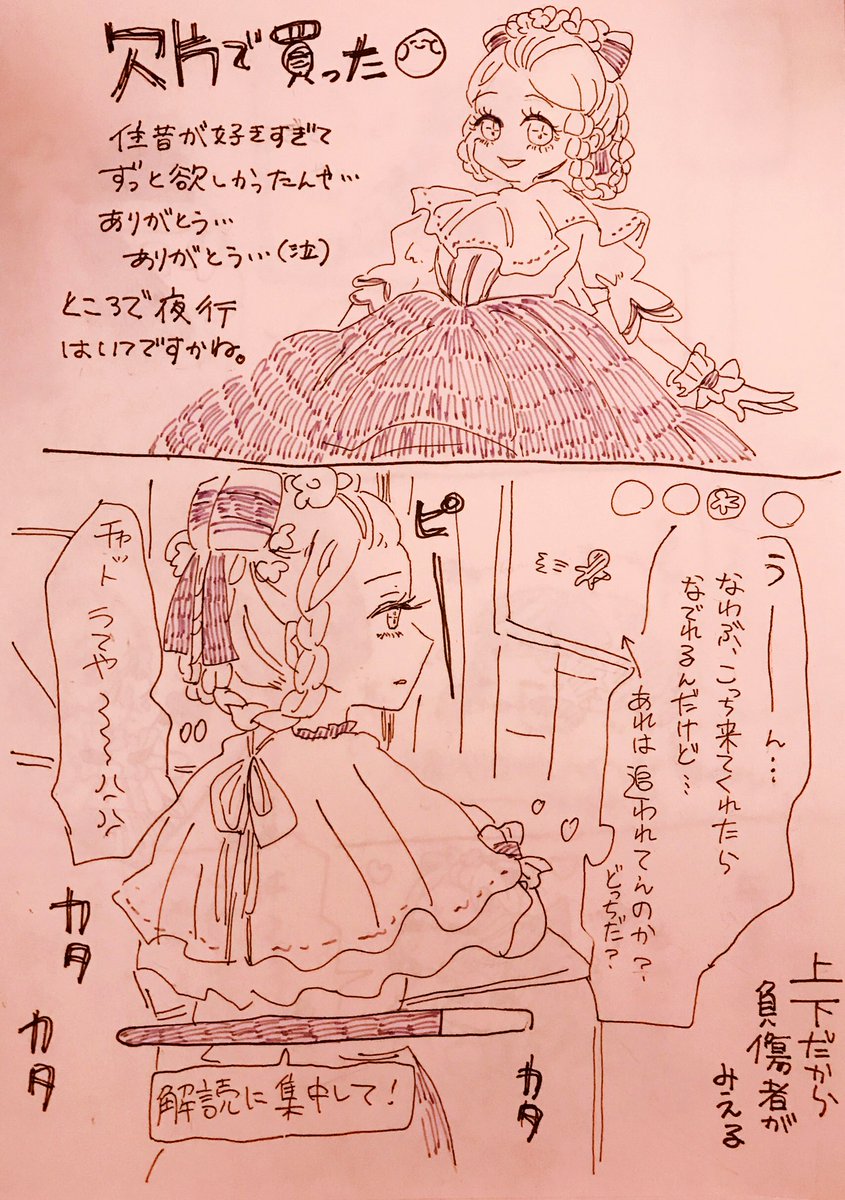 欠片で買った
佳昔が好きすぎて
ずっと欲しかったんや…
ありがとう…
ありがとう…(泣)
ところで夜行
はいつですかね。
うーーん…
なわぶ、こっち来てくれたら
なでれるんだけど…
あれは追われてんのか?
どっちだ?
ピ
チャット
うてや〜〜〜
カタ
カタ
カタ
解読に集中して!
上下だから
負傷者が
みえる